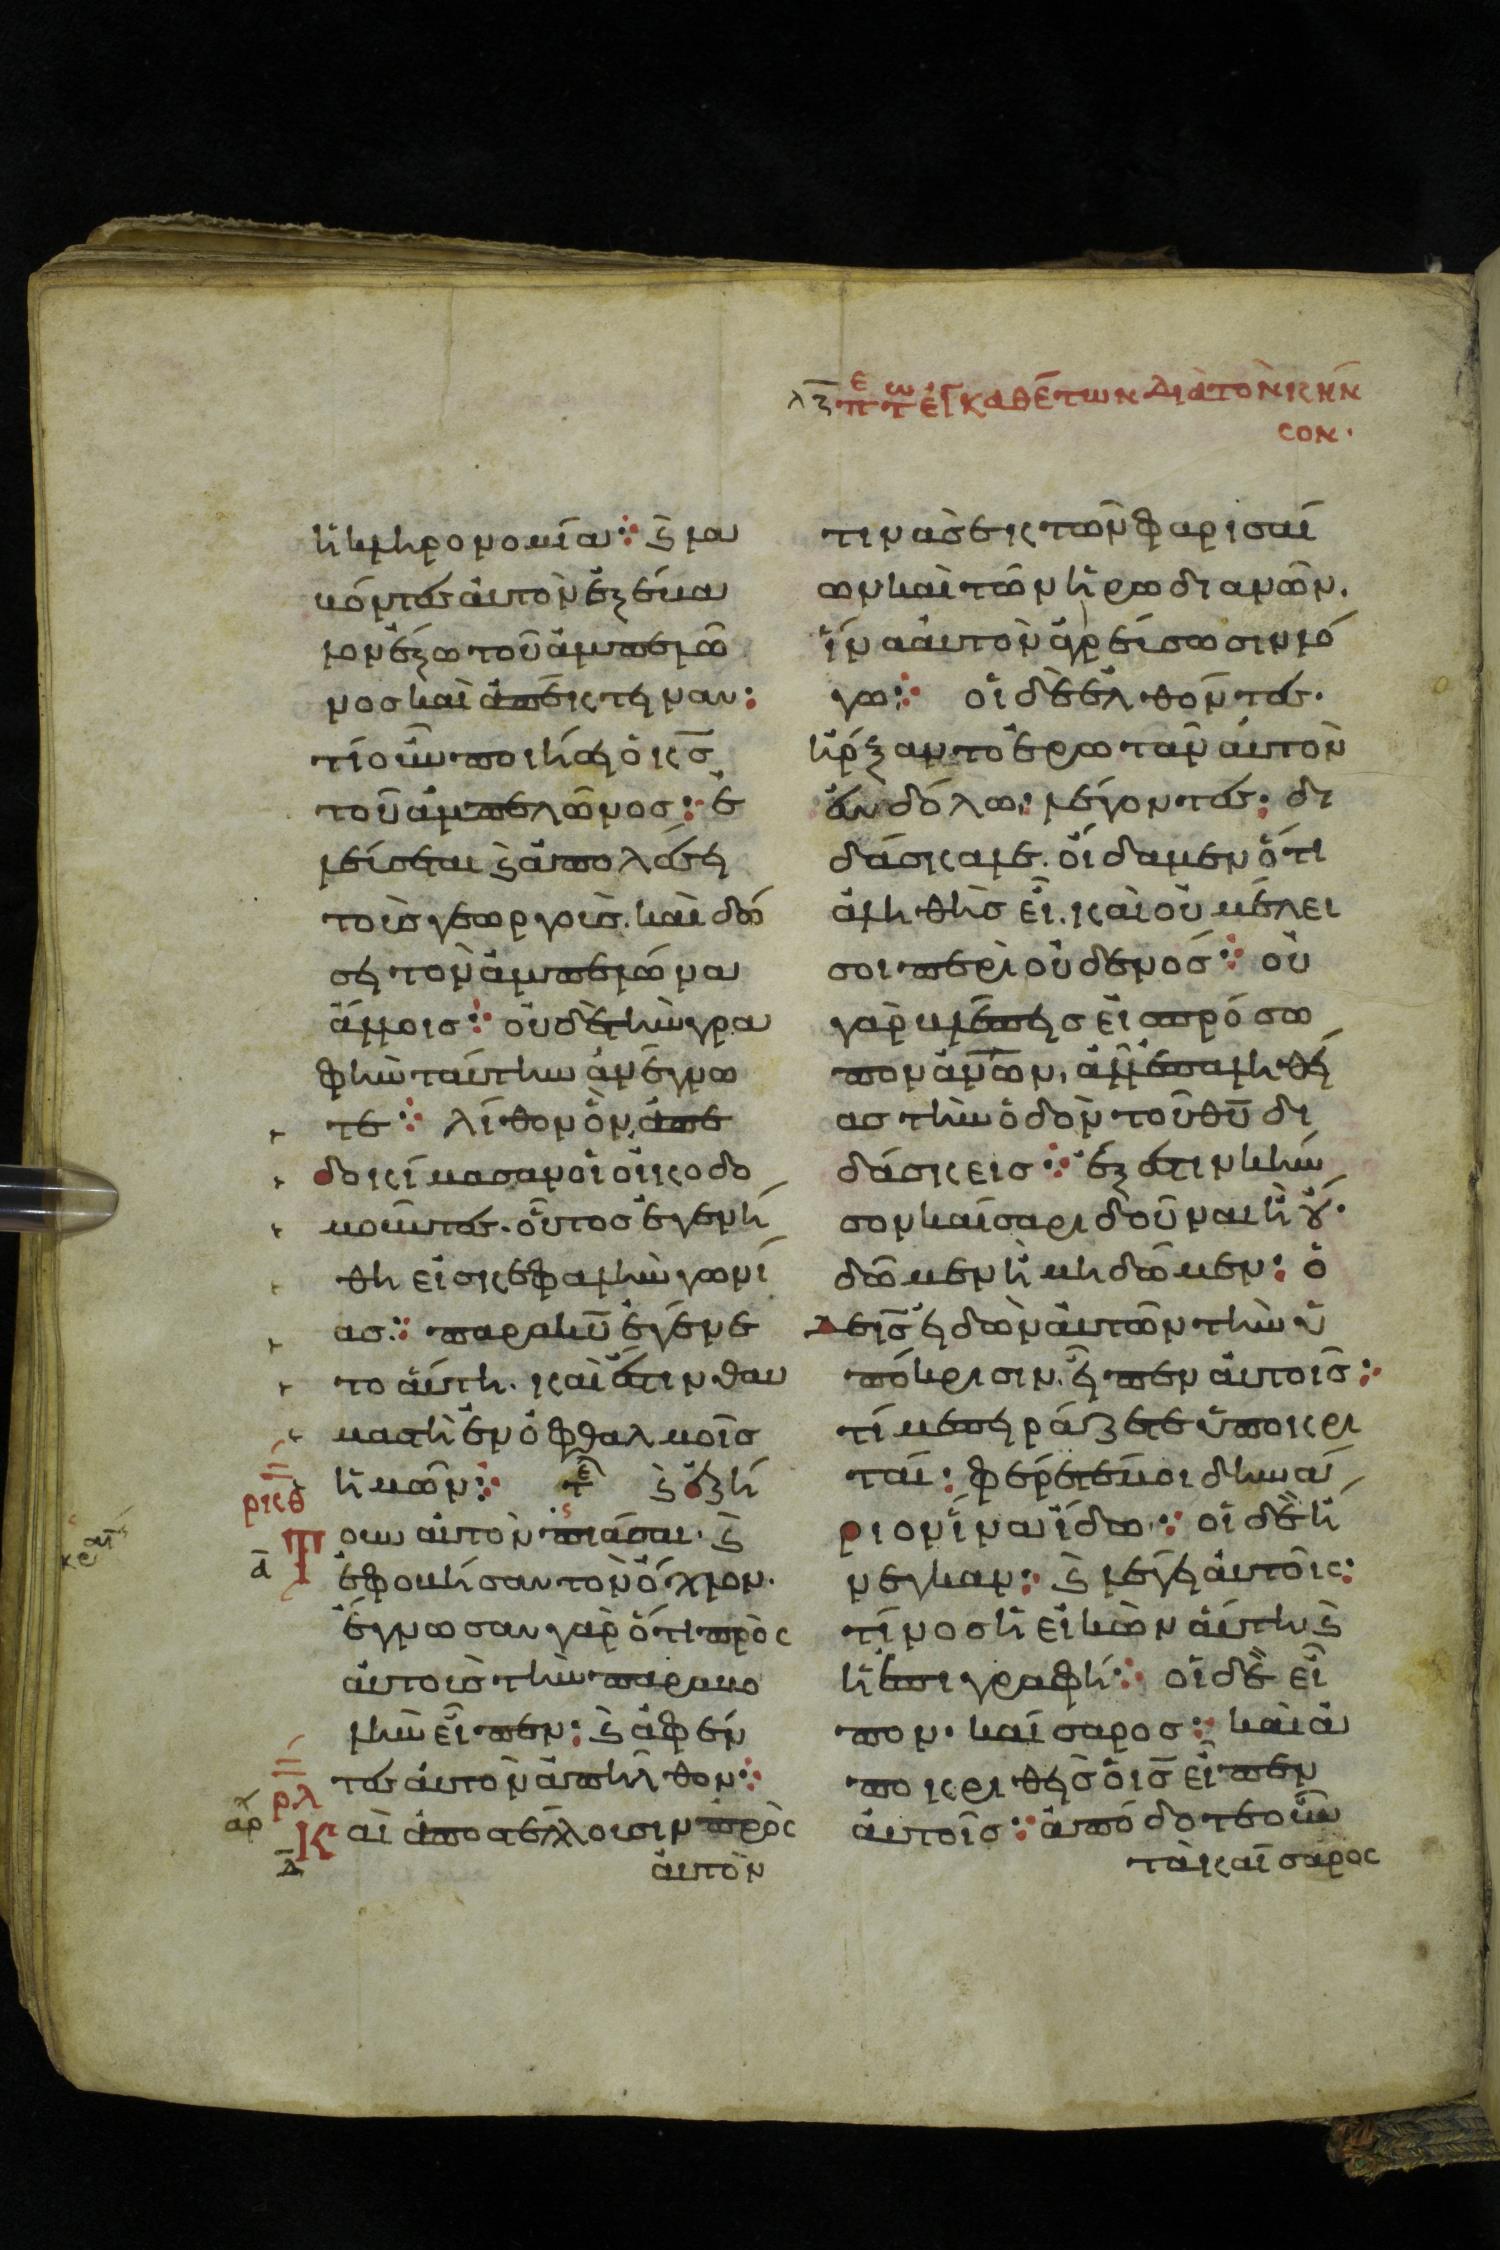 λζ πε τω ἐγκαθέτων διὰ τὸν κῆν
σον·
ἡ κληρονομία ⁘ ϗ λα
βόντες αὐτὸν ἐξέβα
λον ἔξω τοῦ ἀμπελῶ
νος καὶ ἀπέκτειναν :
τί οὖν ποιήσει ὁ κς̅
τοῦ ἀμπελῶνος ⁘ ἐ
λεύσεται ϗ ἀπολέσει
τοὺς γεωργούς. καὶ δώ
σει τὸν ἀμπελῶνα
ἄλλοις ⁘ οὐδὲ τὴν γρα
φὴν ταύτην ἀνέγνω
τε ⁘ λίθον ὃν ἀπε
δοκίμασαν οἱ οἰκοδο
μοῦντες· οὗτος ἐγενή
θη εἰς κεφαλὴν γωνί
ας ⁘ παρα κυ̅ ἐγένε
το αὕτη· καὶ ἔστιν θαυ
μαστὴ ἐν ὀφθαλμοῖς
ἡμῶν ⁘ τε ϗ ἐζή
ρκθ
Τουν αὐτὸν πιάσαι· ϗ
δ̅
ἐφοβήσαν τὸν ὄχλον·
ἔγνωσαν γὰρ ὅτι πρὸς
αὐτοὺς τὴν παραβο
λὴν εἶπεν : ϗ ἀφέν
τες αὐτὸν ἀπῆλθον ⁘
ρλ
αρ
Καὶ ἀποστέλλουσιν πρὸς
αὐτὸν
τινὰς ἐκ τῶν φαρισαί
ων καὶ τῶν ἡρωδιανῶν.
ἵνα αὐτὸν ἀγρεύσωσιν λό
γω ⁘ οἱ δὲ ἐλθόντες·
ἤρξαντο ἐρωτᾶν αὐτὸν
ἐν δόλω : λέγοντες : δι
δάσκαλε. οἴδαμεν ὅτι
ἀληθὴς εἶ. καὶ οὐ μέλει
σοι περὶ οὐδενός ⁘ οὐ
γὰρ βλέπεις εἰς πρόσω
πον ἀνω̅ν, ἀλλ' ἐπ' ἀληθεί
ας τὴν ὁδὸν τοῦ θυ̅ δι
δάσκεις ⁘ ἔξεστιν κῆν
σον καίσαρι δοῦναι ἢ οὔ·
δῶμεν ἢ μὴ δῶμεν : ὁ
δὲ ις̅ εἰδὼν αὐτῶν τὴν ὑ
πόκρισιν. εἶπεν αὐτοῖς ⁘
τί με πειράζετε ὑποκρι
ταί : φέρετέ μοι δηνά
ριον ἵνα ἴδω ⁘ οἱ δὲ ἤ
νεγκαν : ϗ λέγει αὐτοῖς :
τίνος ἡ εἰκὼν αὕτη ϗ
ἡ ἐπιγραφή ⁘ οἱ δὲ εἶ
πον· καίσαρος ⁘ καὶ ἀ
ποκριθεὶς ὁ ις̅ εἶπεν
αὐτοῖς ⁘ ἀπόδοτε οὖν
τὰ καίσαρος